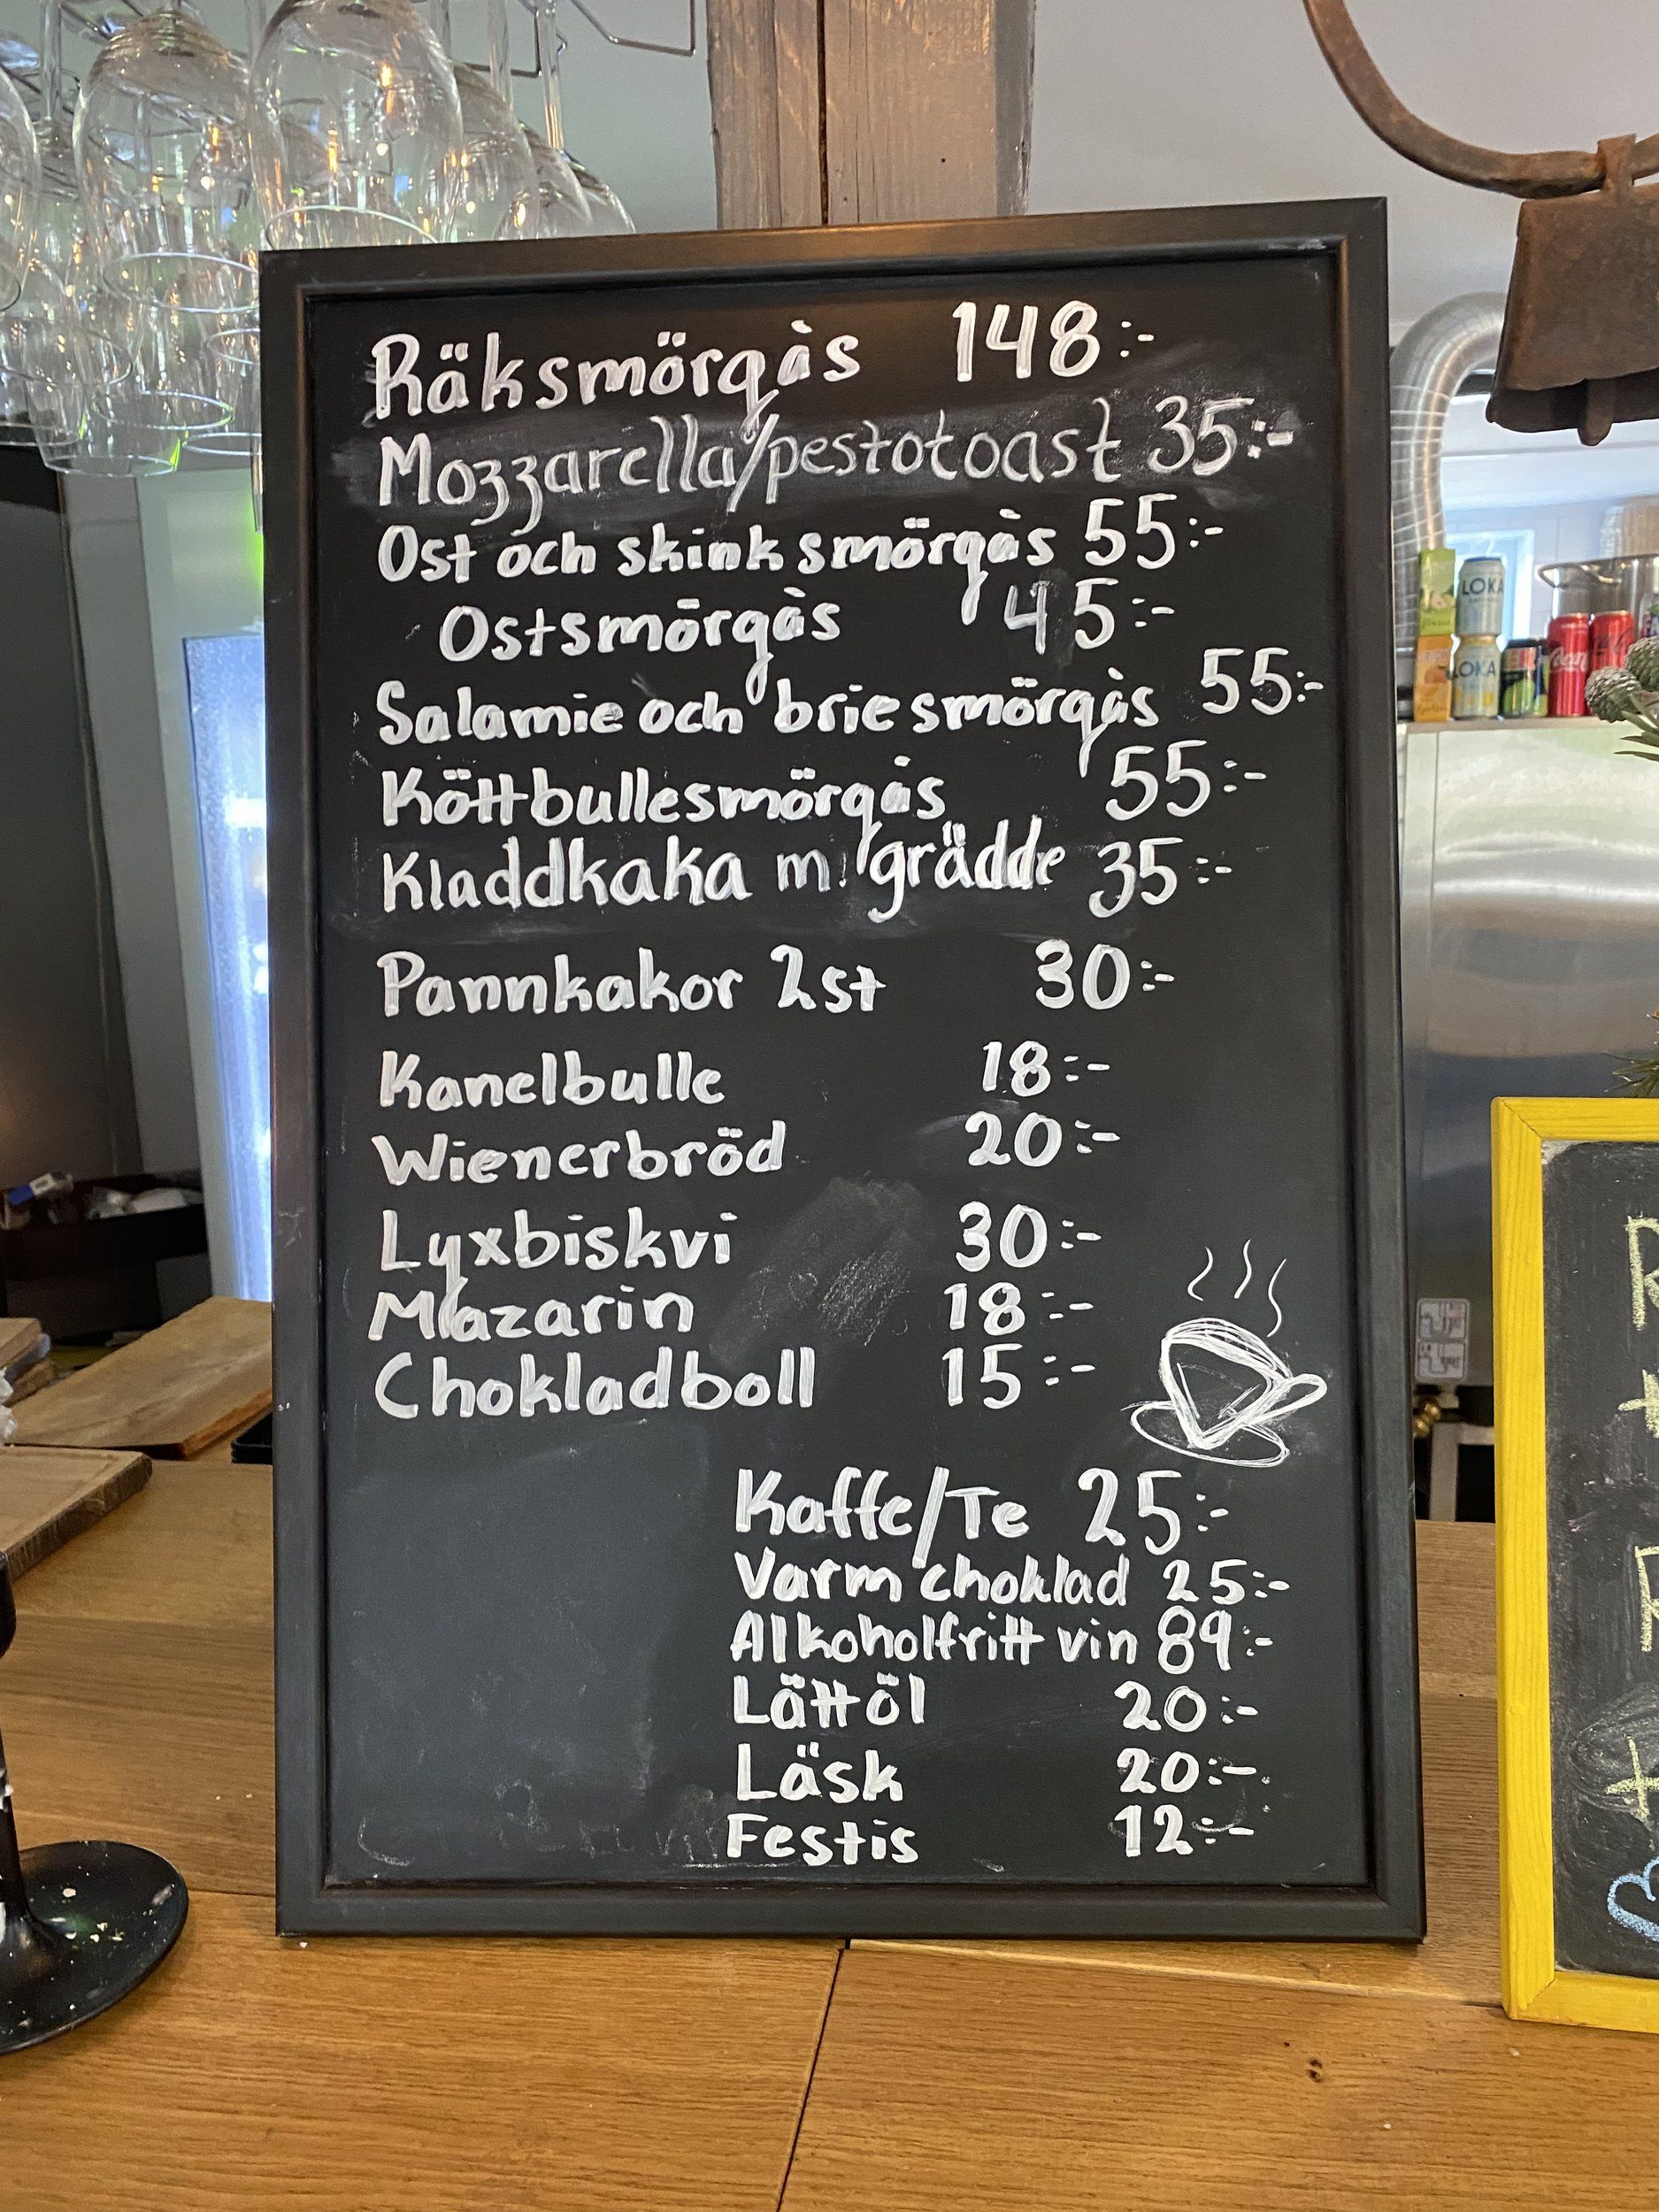 Räksmörgås 148:-
Mozzarella/pestotoast 35:-
Ost och skinksmörgås 55:-
Ostsmörgås 45:-
Salamie och briesmörgås 55:-
Köttbullesmörgås 55:-
Kladdkaka m. grädde 35:-
Pannkakor 2st 30:-
Kanelbulle 18:-
Wienerbröd 20:-
Lyxbiskvi 30:-
Mazarin 18:-
Chokladboll 15:-
Kaffe/Te 25:-
Varm choklad 25:-
Alkoholfritt vin 89:-
Lättöl 20:-
Läsk 20:-
Festis 12:-
LOKA
LOKA